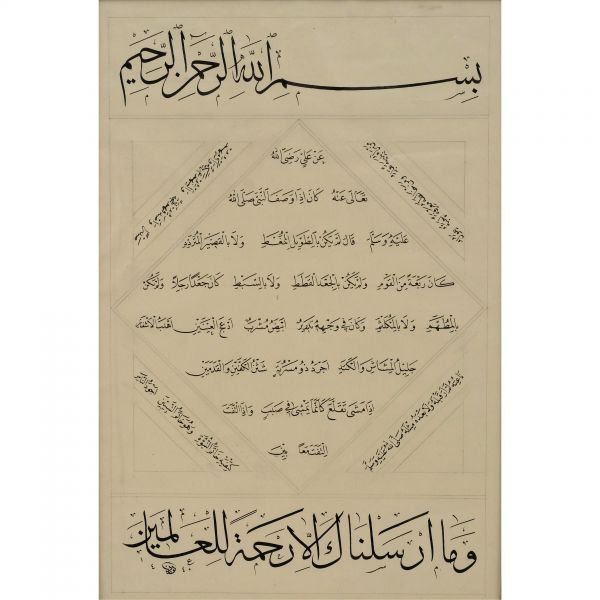 بِسْمِ اللهِ الرَّحْمٰنِ الرَّحِيْمِ
عَنْ عَلِيٍّ رَضِيَ اللهُ
تَعَالَى عَنْهُ كَانَ اِذَا وَصَفَ النَّبِيَّ صَلَّى اللهُ
عَلَيْهِ وَسَلَّمَ قَالَ لَمْ يَكُنْ بِالطَّوِيلِ الْمُمَّغِطِ وَلَا بِالْقَصِيرِ الْمُتَرَدِّدِ
كَانَ رَبْعَةً مِنَ الْقَوْمِ وَلَمْ يَكُنْ بِالْجَعْدِ الْقَطَطِ وَلَا بِالسَّبِطِ كَانَ جَعْدًا رَجِلًا وَلَمْ يَكُنْ
بِالْمُطَهَّمِ وَلَا بِالْمُكَلْثَمِ وَكَانَ فِي وَجْهِهِ تَدْوِيرٌ اَبْيَضُ مُشْرَبٌ اَدْعَجُ الْعَيْنَيْنِ اَهْدَبُ الْاَشْفَارِ
جَلِيلُ الْمُشَاشِ وَالْكَتَدِ اَجْرَدُ ذُو مَسْرُبَةٍ شَثْنُ الْكَفَّيْنِ وَالْقَدَمَيْنِ
اِذَا مَشَى تَقَلَّعَ كَاَنَّمَا يَمْشِي فِي صَبَبٍ وَاِذَا الْتَفَتَ
اِلْتَفَتَ مَعًا بَيْنَ
كَتِفَيْهِ خَاتَمُ النُّبُوَّةِ
وَهُوَ خَاتَمُ النَّبِيِّينَ
اَجْوَدُ النَّاسِ
وَمَا اَرْسَلْنَاكَ اِلَّا رَحْمَةً لِلْعَالَمِينَ